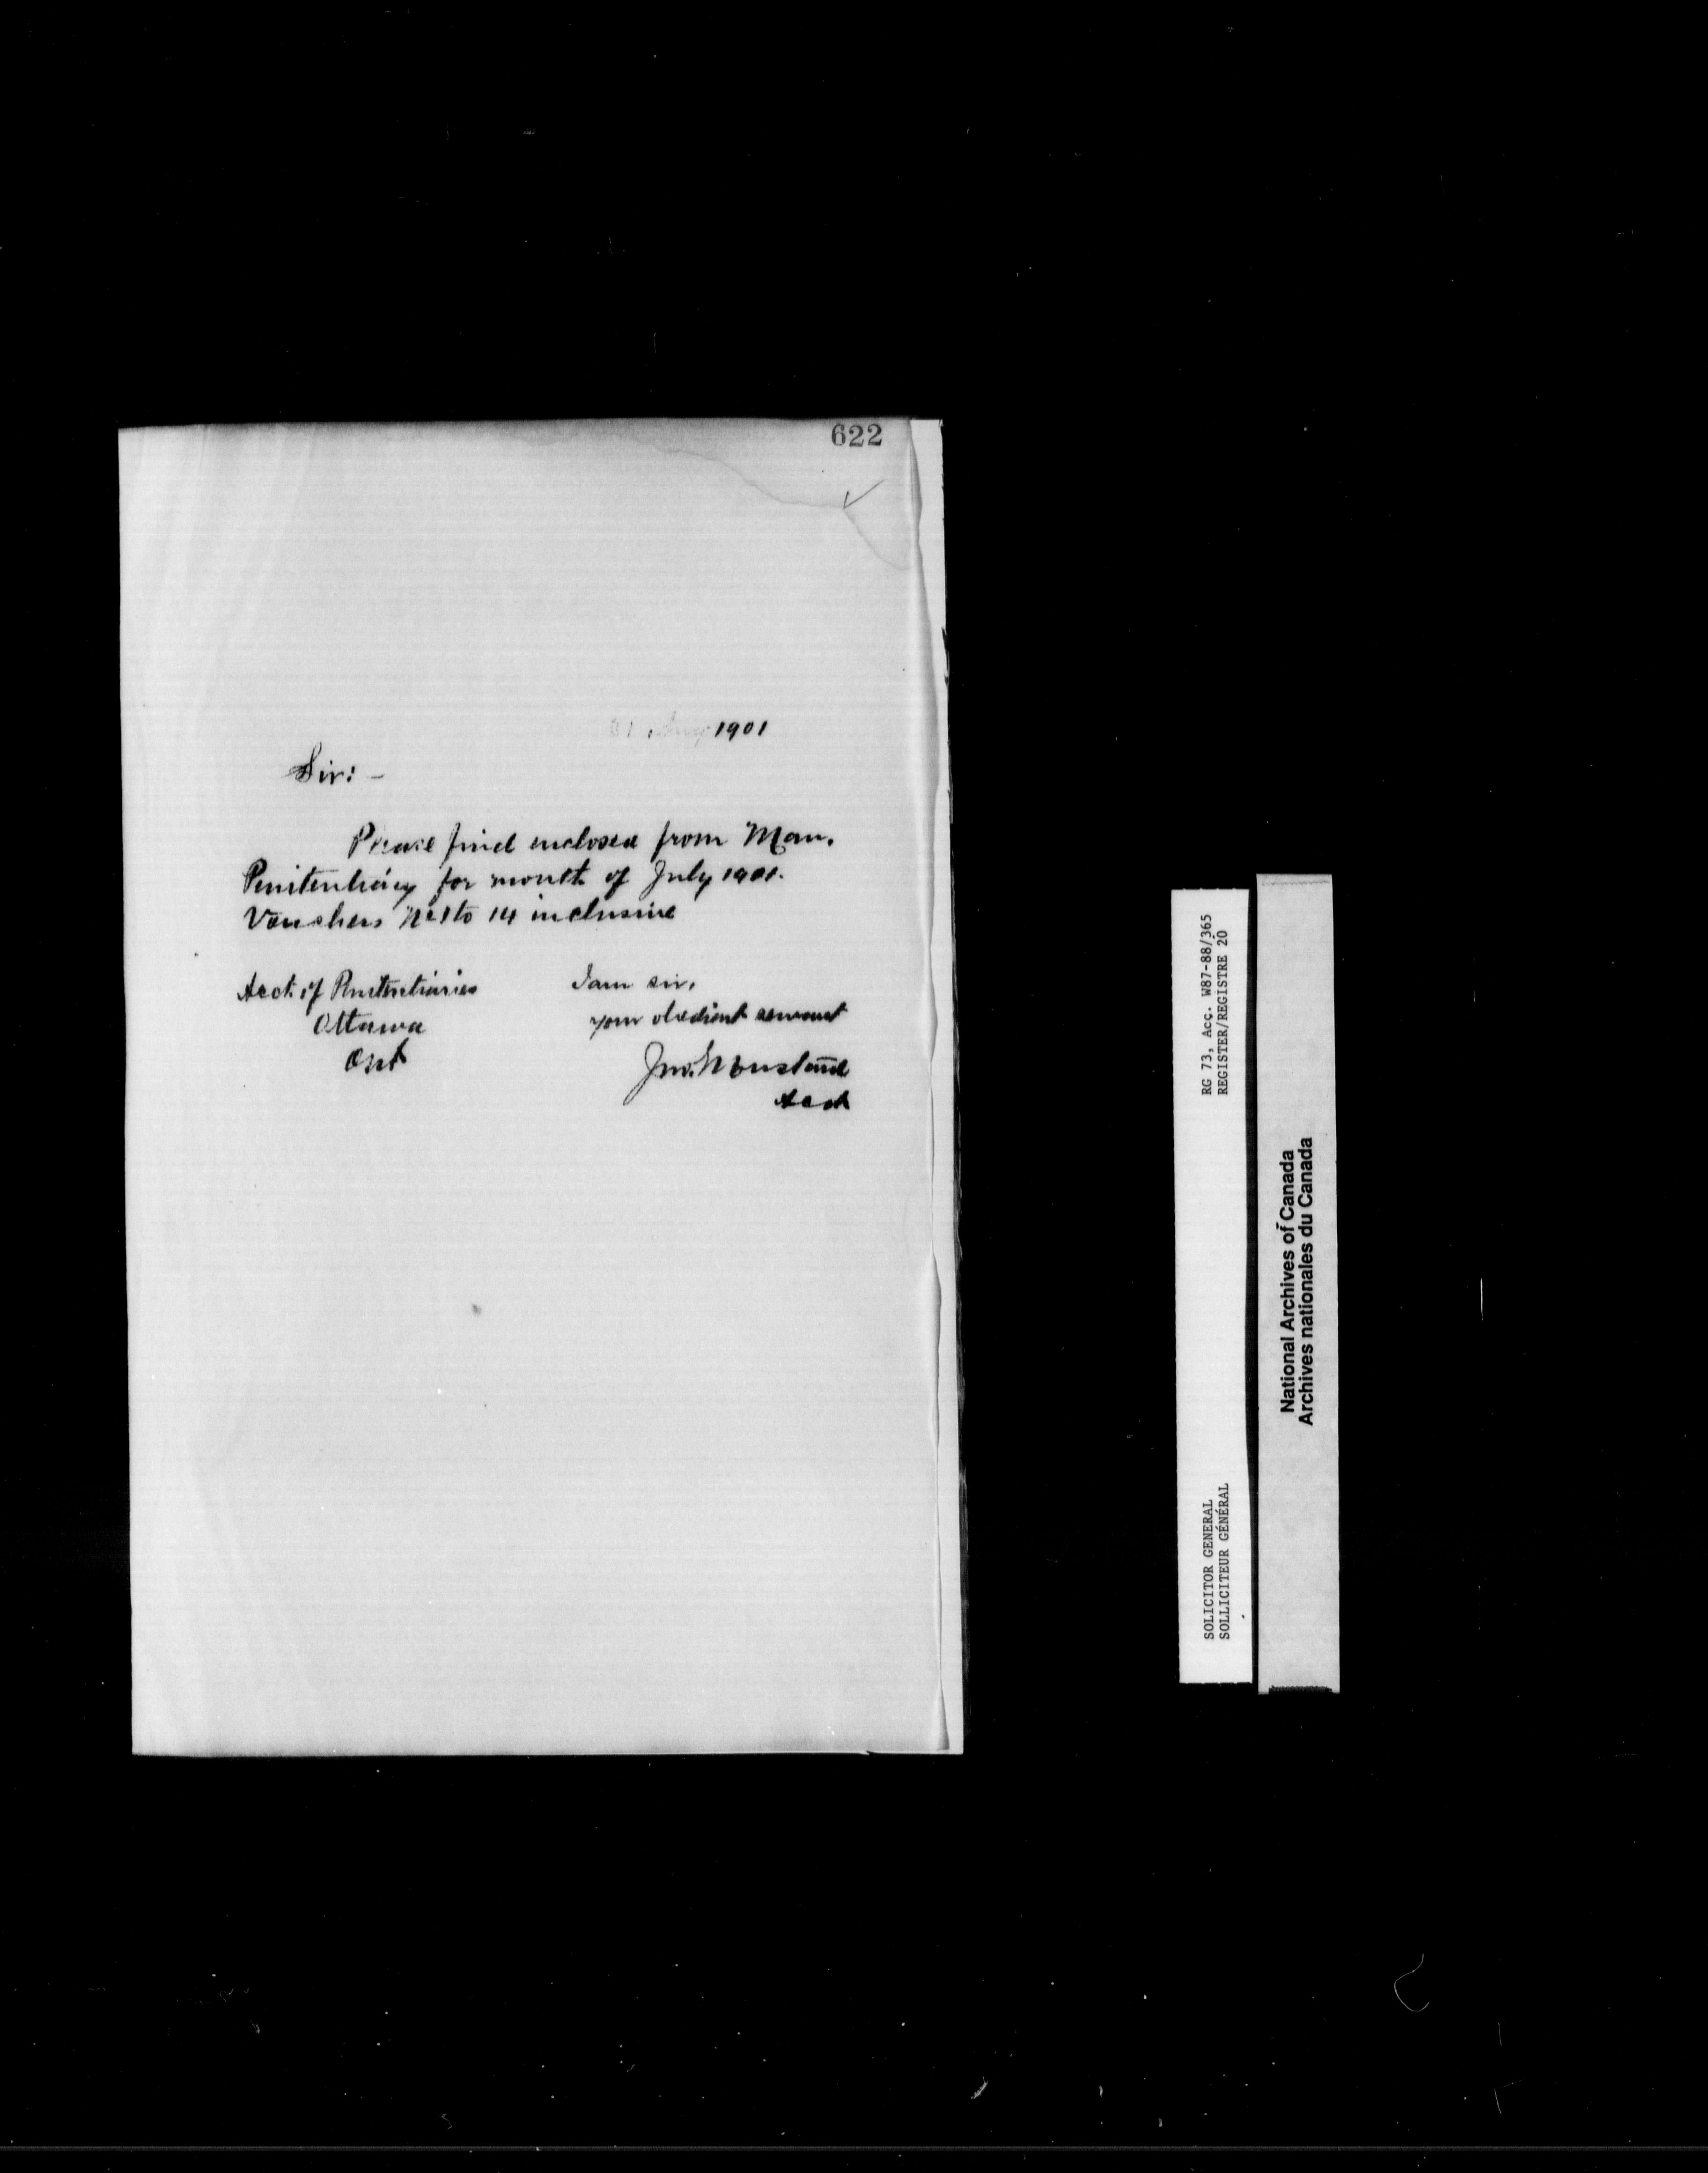 622
Aug 1901
Sir: -
Please find enclosed from Man.
Penitentiary for month of July 1901.
Vouchers No 1 to 14 inclusive
Acct. of Penitentiaries
Ottawa
Ont
I am sir,
your obedient servant
Jno.
Acct
RG 73, Acc. W87-88/365
REGISTER/REGISTRE 20
SOLICITOR GENERAL
SOLLICITEUR GÉNÉRAL
National Archives of Canada
Archives nationales du Canada